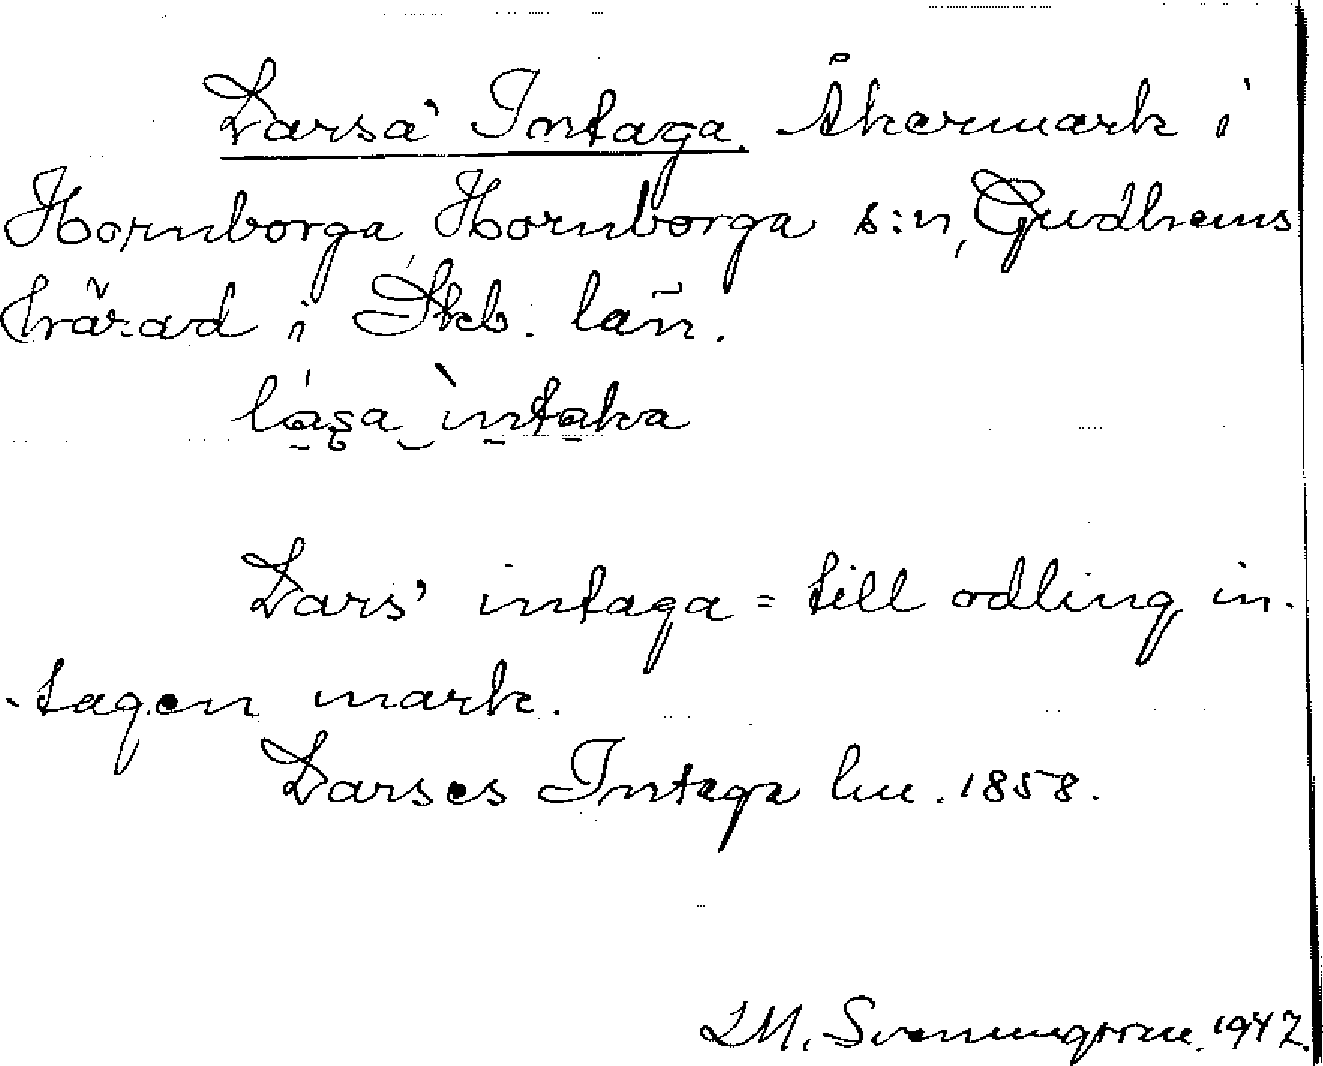 Larsa' Intaga. Åkermark i
Hornborga, Hornborga s:n, Gudhems
härad i Skb. län.
Lars' intaga = till odling in-
-tagen mark.
Larses Intaga lm. 1858.
1947.